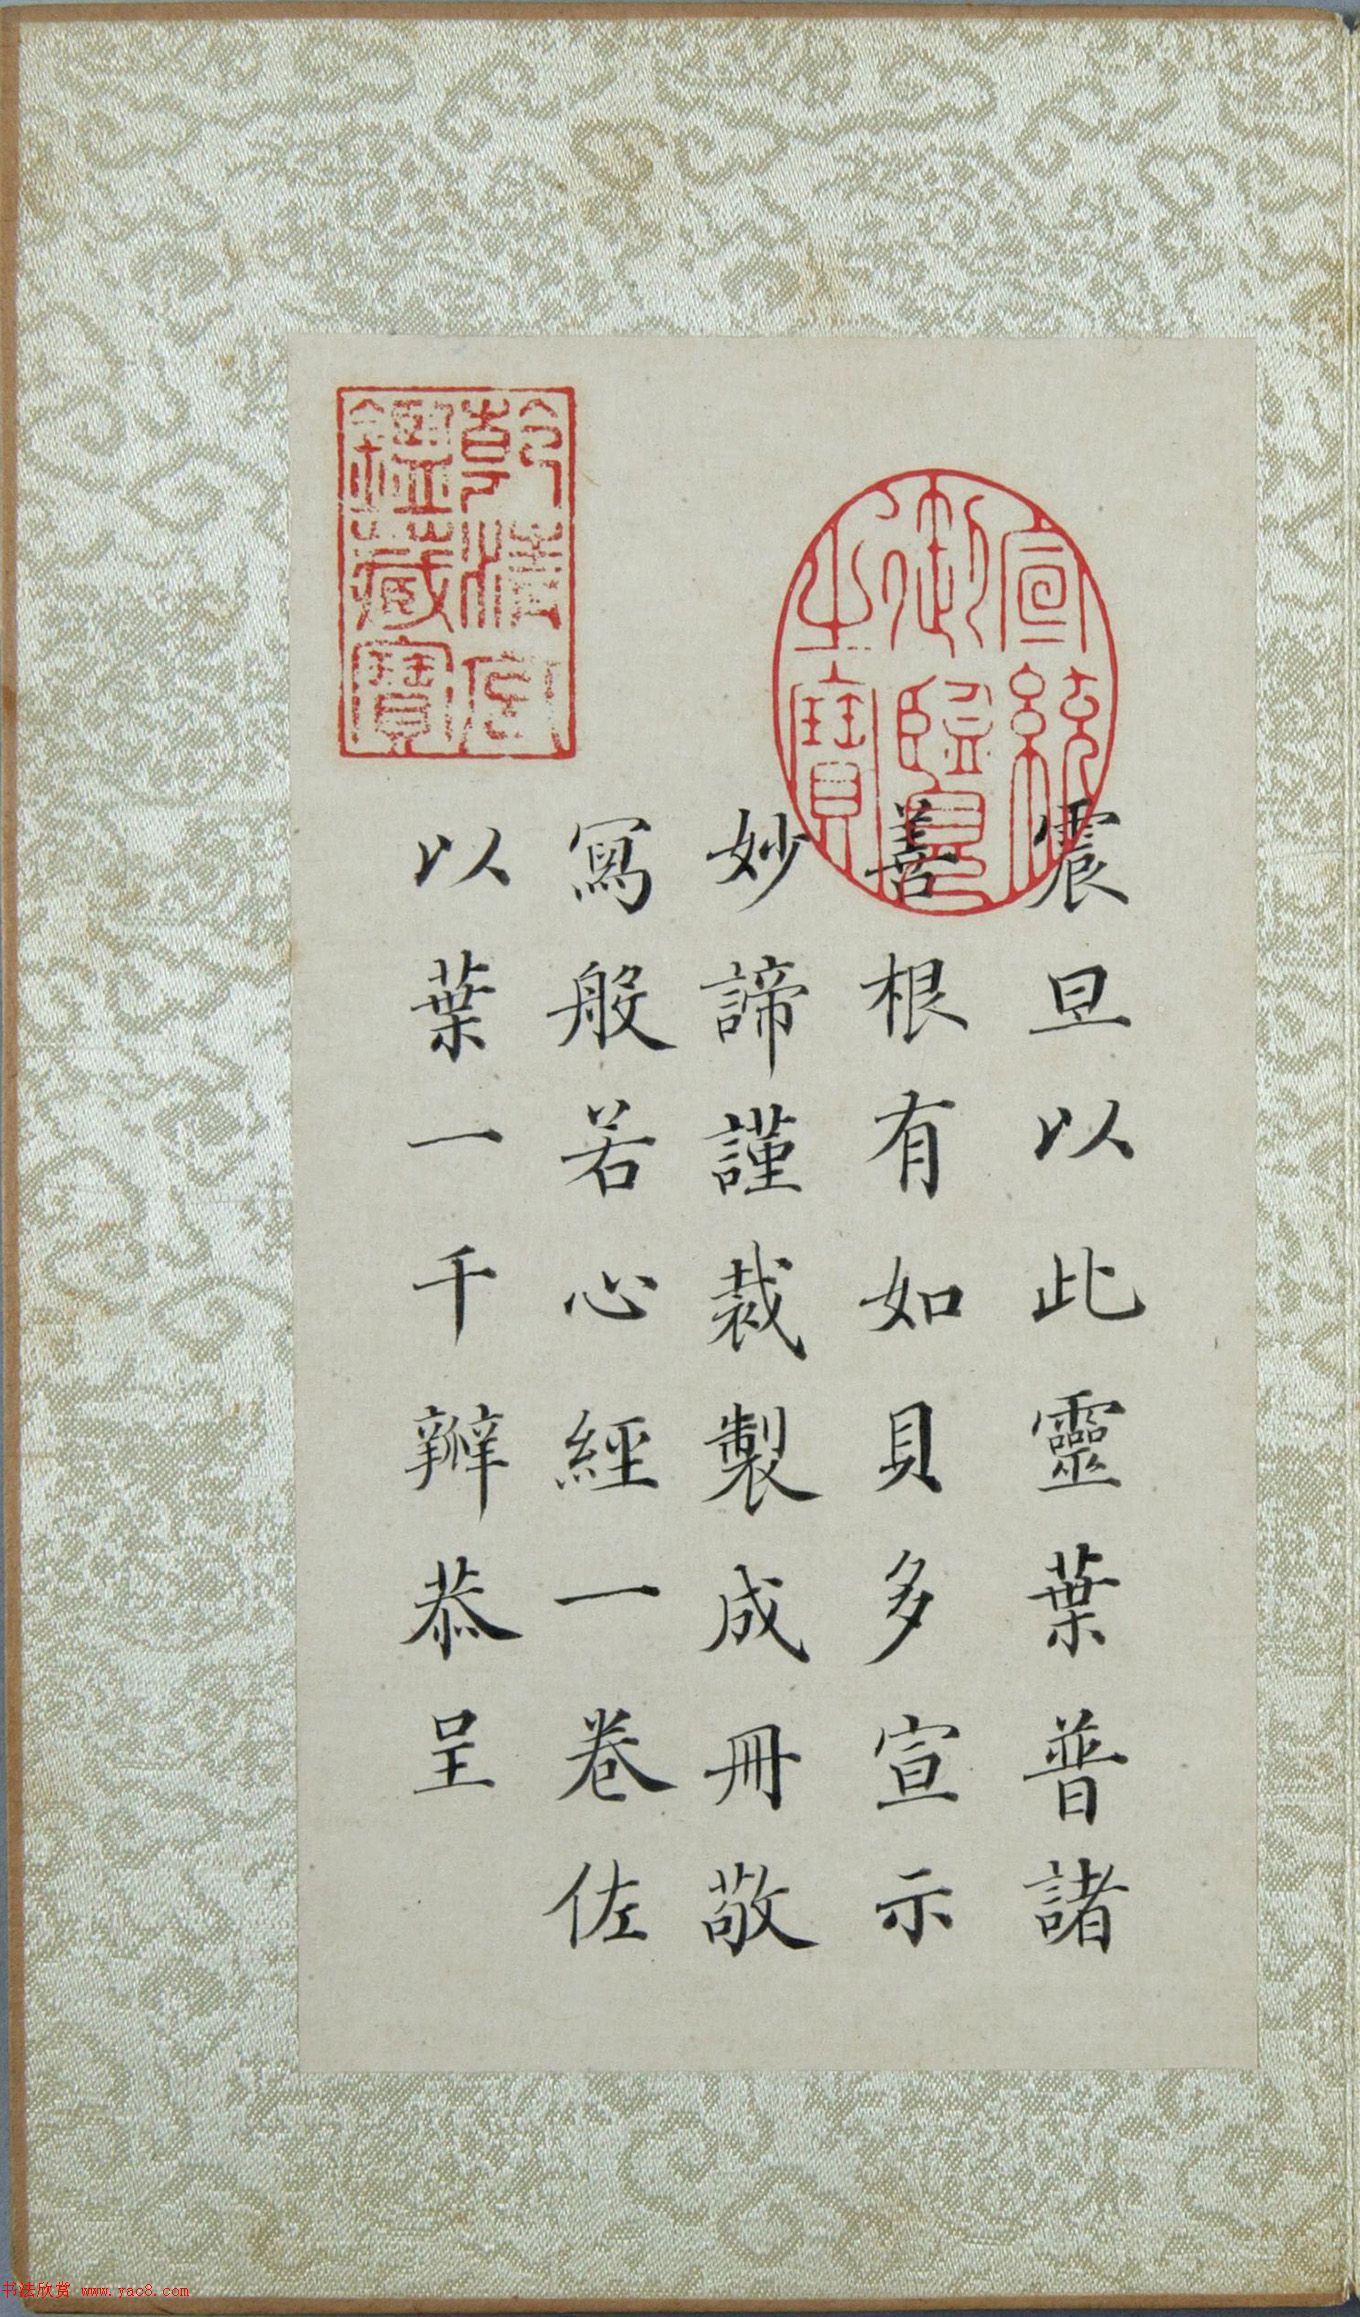 震旦以此靈葉普諸
善根有如貝多宣示
妙諦謹裁製成冊敬
寫般若心經一卷佐
以葉一千瓣恭呈
宣統御覽之寶
乾清宮鑑藏寶
书法欣赏 www.yac8.com